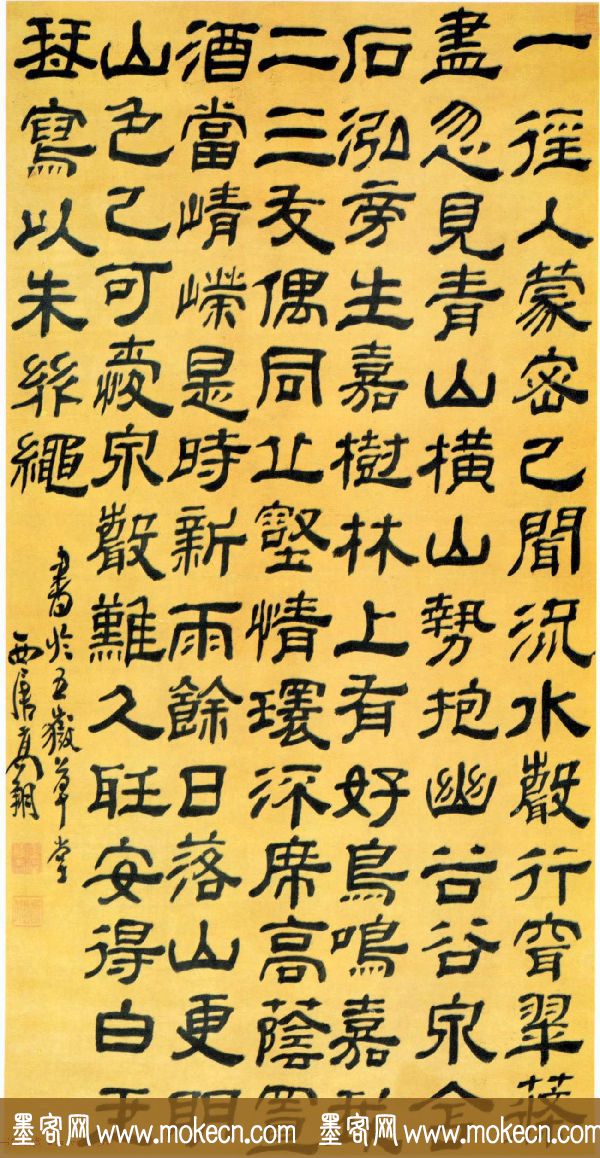 一徑入蒙密已聞流水聲行穿翠篠
盡忽見青山橫山勢抱幽谷谷泉含
石泓旁生嘉樹林上有好鳥鳴嘉我
二三友偶同丘壑情環深席高蔭置
酒當崝嶸是時新雨餘日落山更明
山色已可愛泉聲難久聽安得白玉
琴寫以朱絲繩
書於五嶽草堂
西唐高翔
墨客网 www.mokecn.com 墨客网 www.mokecn.com